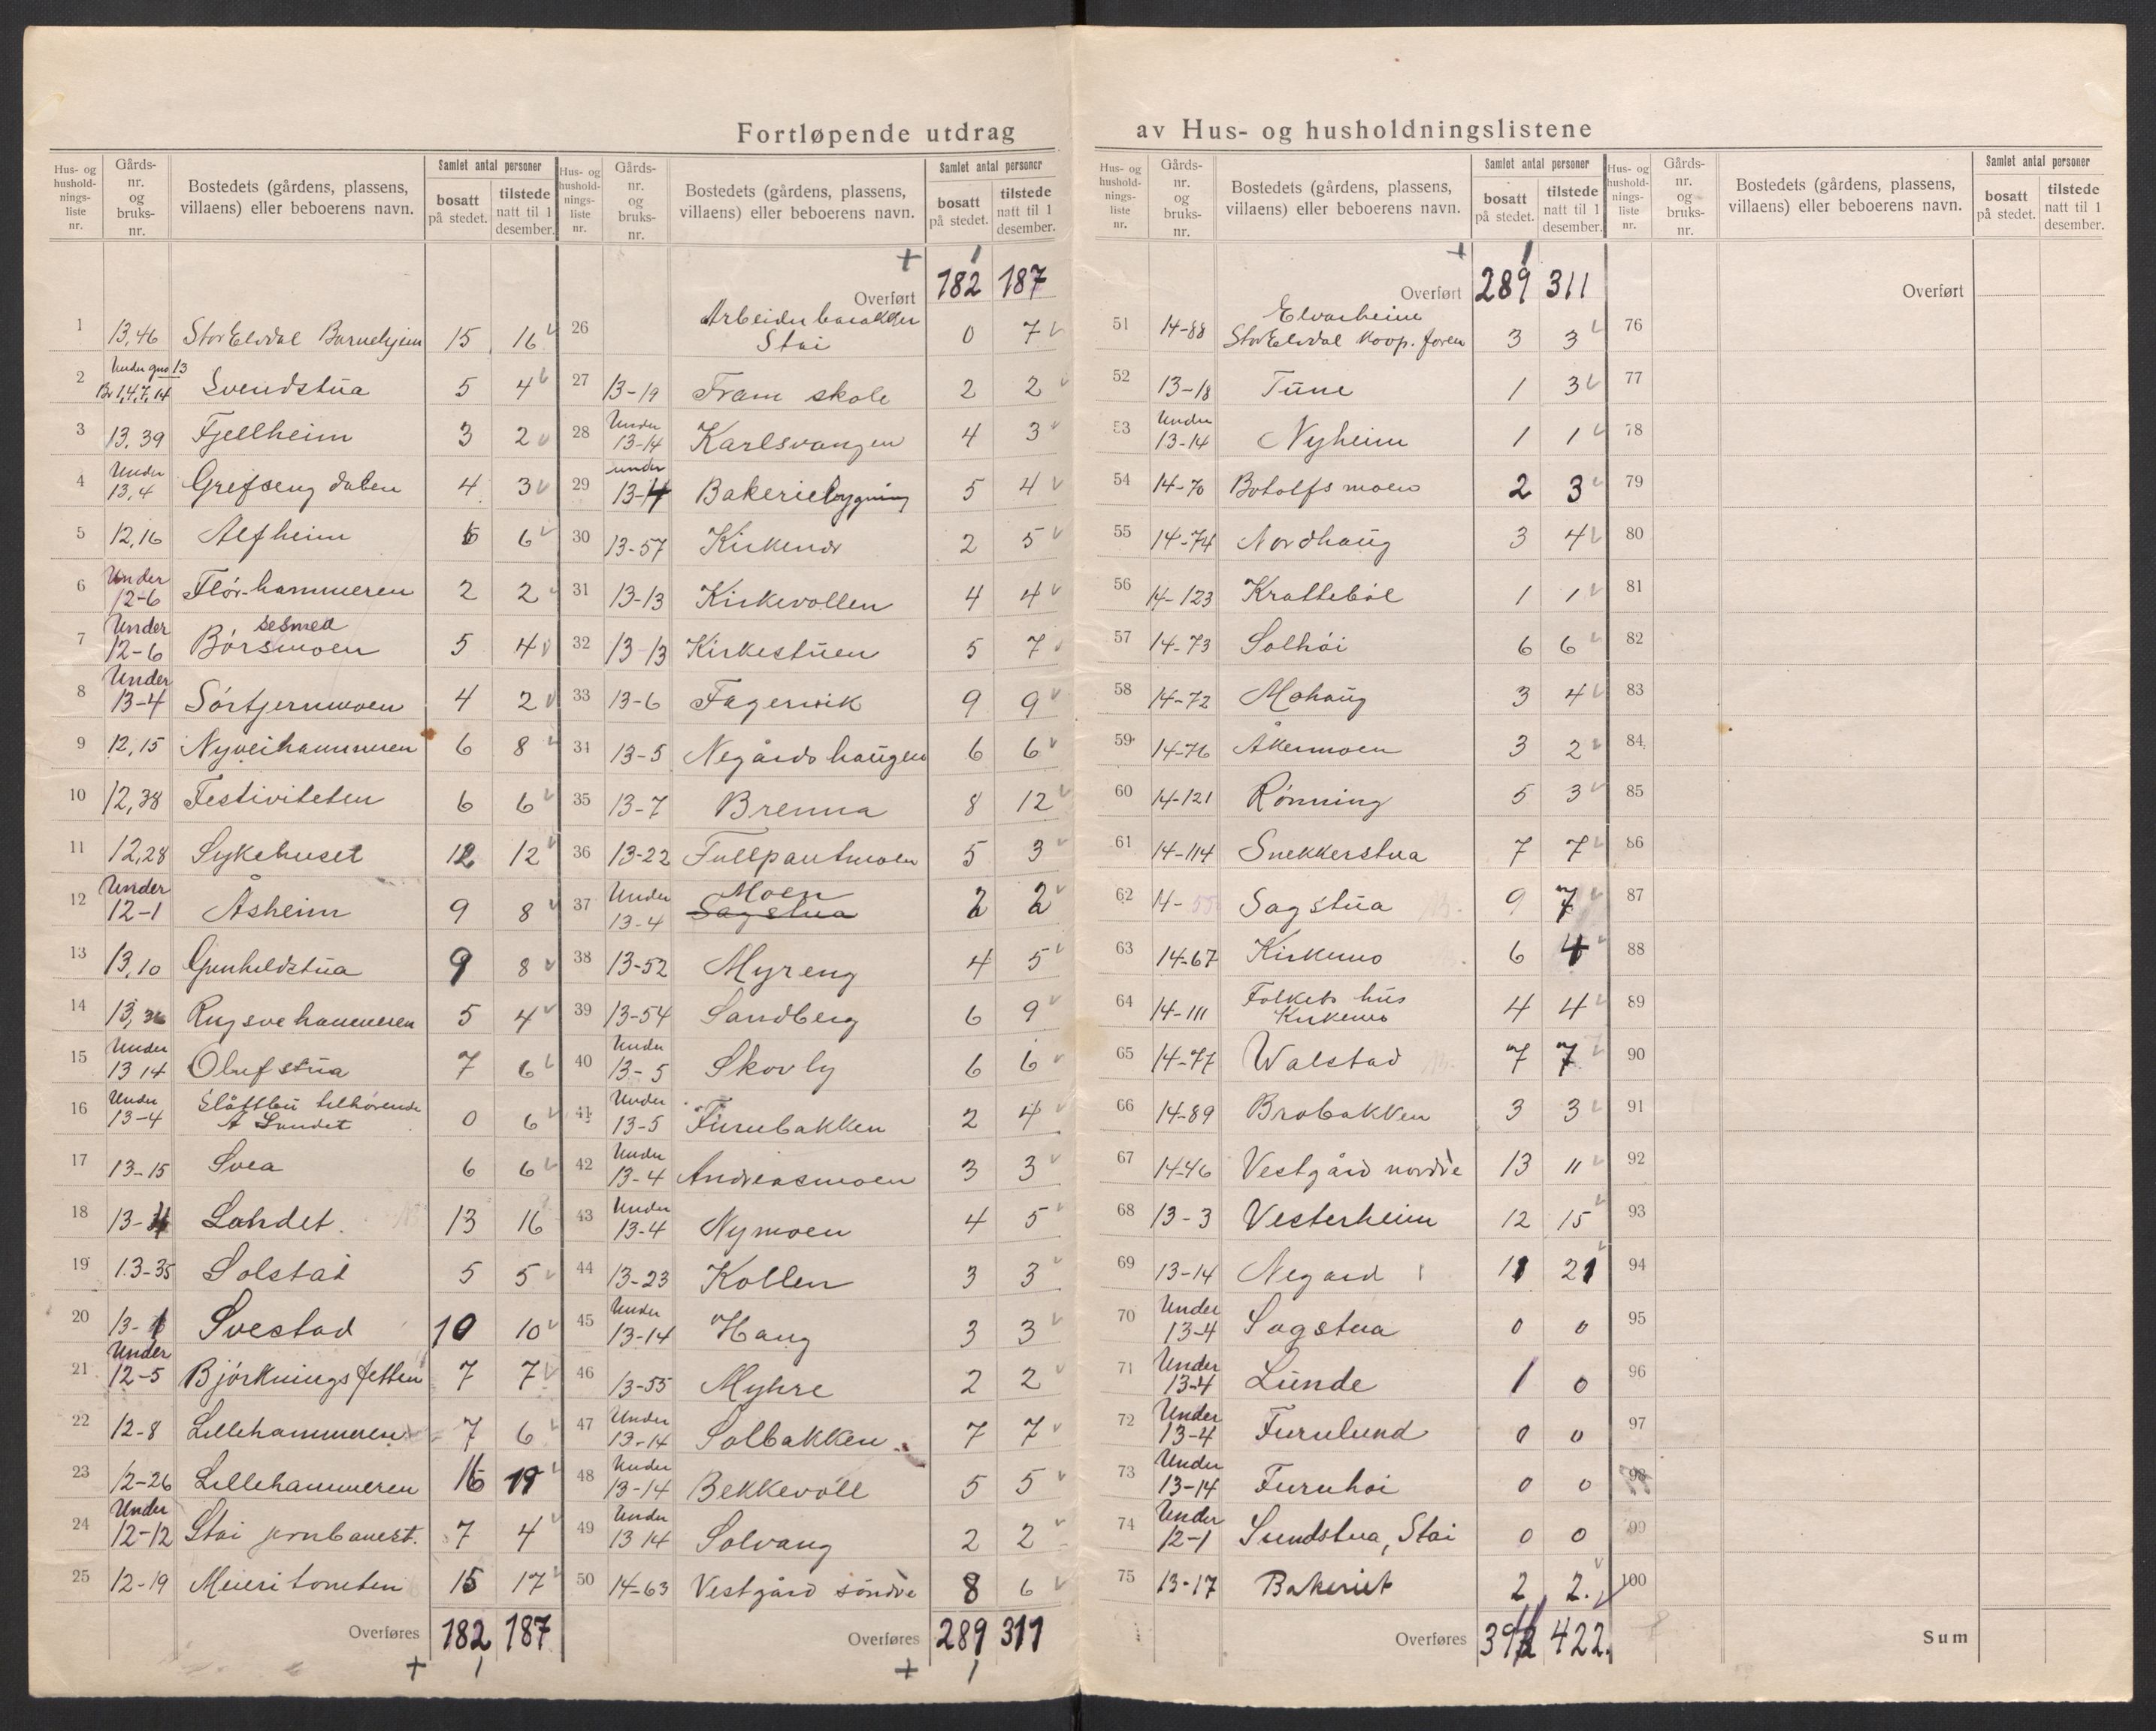 Fortløpende utdrag av Hus- og husholdningslistene
Hus- og husholdnings- liste nr. | Gårds- nr. og bruks- nr. | Bostedets (gårdens, plassens, villaens) eller beboerens navn. | Samlet antal personer bosatt på stedet. | tilstede natt til 1 desember.
1 13,46 StorElvdal Barnehjem 15 16
2 Under gno 13 Br 1,4,7,14 Svendstua 5 4
3 13,39 Fjellheim 3 2
4 Under 13,4 Grefseng dalen 4 3
5 12,16 Alfheim 6 6
6 Under 12-6 Flør-hammeren 2 2
7 Under 12-6 Børsmoen sesmed 5 4
8 Under 13-4 Sørtjernmoen 4 2
9 12,15 Nyveihammeren 6 8
10 12,38 Festiviteten 6 6
11 12,28 Sykehuset 12 12
12 Under 12-1 Åsheim 9 8
13 13,10 Gunhildstua 9 8
14 13,36 Rugsvehammeren 5 4
15 Under 13 14 Olufstua 7 6
16 Under 13-4 Slåttbu tilhørende A Sundet 0 6
17 13-15 Svea 6 6
18 13-4 Landet 13 16
19 13-35 Solstad 5 5
20 13-1 Svestad 10 10
21 Under 12-5 Bjørkningsfetten 7 7
22 12-8 Lillehammeren 7 6
23 12-26 Lillehammeren 16 19
24 Under 12-12 Stai jernbanest. 7 4
25 12-19 Meieritomten 15 17
Overføres 182 187
Hus- og husholdnings- liste nr. | Gårds- nr. og bruks- nr. | Bostedets (gårdens, plassens, villaens) eller beboerens navn. | Samlet antal personer bosatt på stedet. | tilstede natt til 1 desember.
Overført 182 187
26 Arbeiderbarakker Stai 0 7
27 13-19 Fram skole 2 2
28 Under 13-14 Karlsvangen 4 3
29 under 13-4 Bakeriebygning 5 4
30 13-57 Kirkemo 2 5
31 13-13 Kirkevollen 4 4
32 13-13 Kirkestuen 5 7
33 13-6 Fagervik 9 9
34 13-5 Negårdshaugen 6 6
35 13-7 Brenna 8 12
36 13-22 Fullpantmoen 5 3
37 Under 13-4 Moen Sagstua 2 2
38 13-52 Myreng 4 5
39 13-54 Sandberg 6 9
40 Under 13-5 Skovly 6 6
41 Under 13-5 Furubakken 2 4
42 Under 13-4 Andreasmoen 3 3
43 Under 13-4 Nymoen 4 5
44 13-23 Kollen 3 3
45 Under 13-14 Haug 3 3
46 13-55 Myhre 2 2
47 Under 13-14 Solbakken 7 7
48 Under 13-14 Bekkevoll 5 5
49 Under 13 14 Solvang 2 2
50 14-63 Vestgård søndre 8 6
Overføres 289 311
Hus- og husholdnings- liste nr. | Gårds- nr. og bruks- nr. | Bostedets (gårdens, plassens, villaens) eller beboerens navn. | Samlet antal personer bosatt på stedet. | tilstede natt til 1 desember.
Overført 289 311
51 14-88 Elvarheim StorElvdal Koop. foren 3 3
52 13-18 Tune 1 3
53 Under 13-14 Nyheim 1 1
54 14-70 Botolfsmoen 2 3
55 14-74 Nordhaug 3 4
56 14-123 Krattebøl 1 1
57 14-73 Solhøi 6 6
58 14-72 Mohaug 3 4
59 14-76 Åkermoen 3 2
60 14-121 Rønning 5 3
61 14-114 Snekkerstua 7 7
62 14-55 Sagstua 9 7
63 14-67 Kirkemo 6 4
64 14-111 Folkets hus Kirkemo 4 4
65 14-77 Walstad 7 7
66 14-89 Brobakken 3 3
67 14-46 Vestgård nordre 13 11
68 13-3 Vesterheim 12 15
69 13-14 Negard 11 21
70 Under 13-4 Sagstua 0 0
71 Under 13-4 Lunde 1 0
72 Under 13-4 Furulund 0 0
73 Under 13-14 Furuhøi 0 0
74 Under 12-1 Sundstua, Stai 0 0
75 13-17 Bakeriet 2 2
Overføres 422.
Hus- og husholdnings- liste nr. | Gårds- nr. og bruks- nr. | Bostedets (gårdens, plassens, villaens) eller beboerens navn. | Samlet antal personer bosatt på stedet. | tilstede natt til 1 desember.
Overført
76
77
78
79
80
81
82
83
84
85
86
87
88
89
90
91
92
93
94
95
96
97
98
99
100
Sum